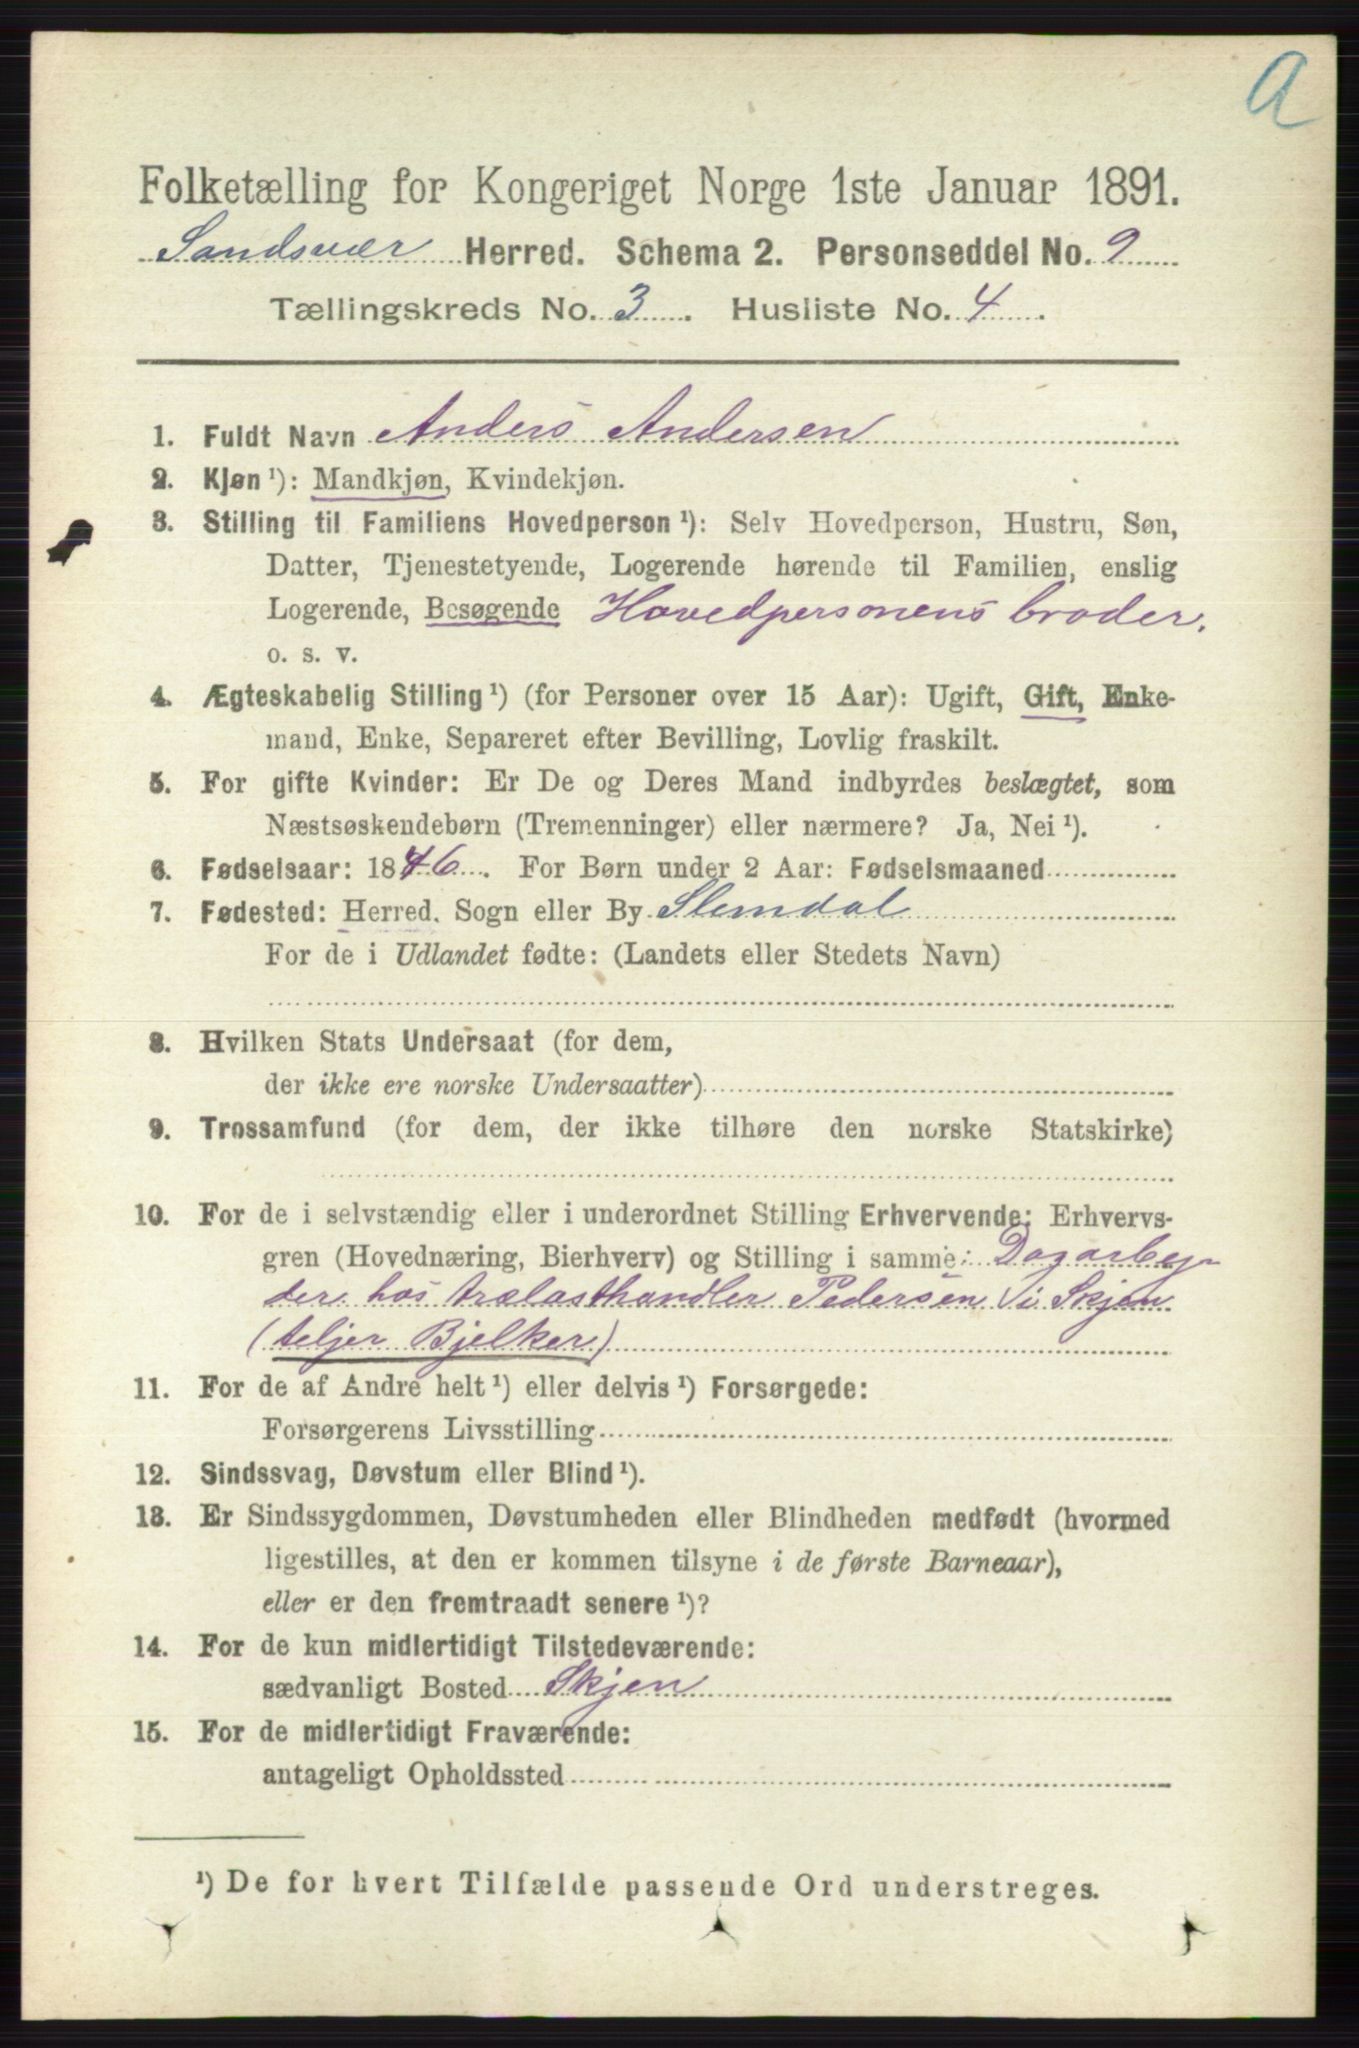 a
Folketælling for Kongeriget Norge 1ste Januar 1891.
Sandsvær Herred. Schema 2. Personseddel No. 9
Tællingskreds No. 3. Husliste No. 4.
1. Fuldt Navn Anders Andersen
2. Kjøn ¹): Mandkjøn, Kvindekjøn.
3. Stilling til Familiens Hovedperson ¹): Selv Hovedperson, Hustru, Søn,
Datter, Tjenestetyende, Logerende hørende til Familien, enslig
Logerende, Besøgende Hovedpersonens broder.
o. s. v.
4. Ægteskabelig Stilling ¹) (for Personer over 15 Aar): Ugift, Gift, Enke-
mand, Enke, Separeret efter Bevilling, Lovlig fraskilt.
5. For gifte Kvinder: Er De og Deres Mand indbyrdes beslægtet, som
Næstsøskendebørn (Tremenninger) eller nærmere? Ja, Nei ¹).
6. Fødselsaar: 1846. For Børn under 2 Aar: Fødselsmaaned
7. Fødested: Herred, Sogn eller By Slemdal
For de i Udlandet fødte: (Landets eller Stedets Navn)
8. Hvilken Stats Undersaat (for dem,
der ikke ere norske Undersaatter)
9. Trossamfund (for dem, der ikke tilhøre den norske Statskirke)
10. For de i selvstændig eller i underordnet Stilling Erhvervende: Erhvervs-
gren (Hovednæring, Bierhverv) og Stilling i samme: Dagarbej-
der hos trælasthandler Pedersen i Skjen
(teljer Bjelker)
11. For de af Andre helt ¹) eller delvis ¹) Forsørgede:
Forsørgerens Livsstilling
12. Sindssvag, Døvstum eller Blind ¹).
13. Er Sindssygdommen, Døvstumheden eller Blindheden medfødt (hvormed
ligestilles, at den er kommen tilsyne i de første Barneaar),
eller er den fremtraadt senere ¹)?
14. For de kun midlertidigt Tilstedeværende:
sædvanligt Bosted Skjen
15. For de midlertidigt Fraværende:
antageligt Opholdssted
¹) De for hvert Tilfælde passende Ord understreges.